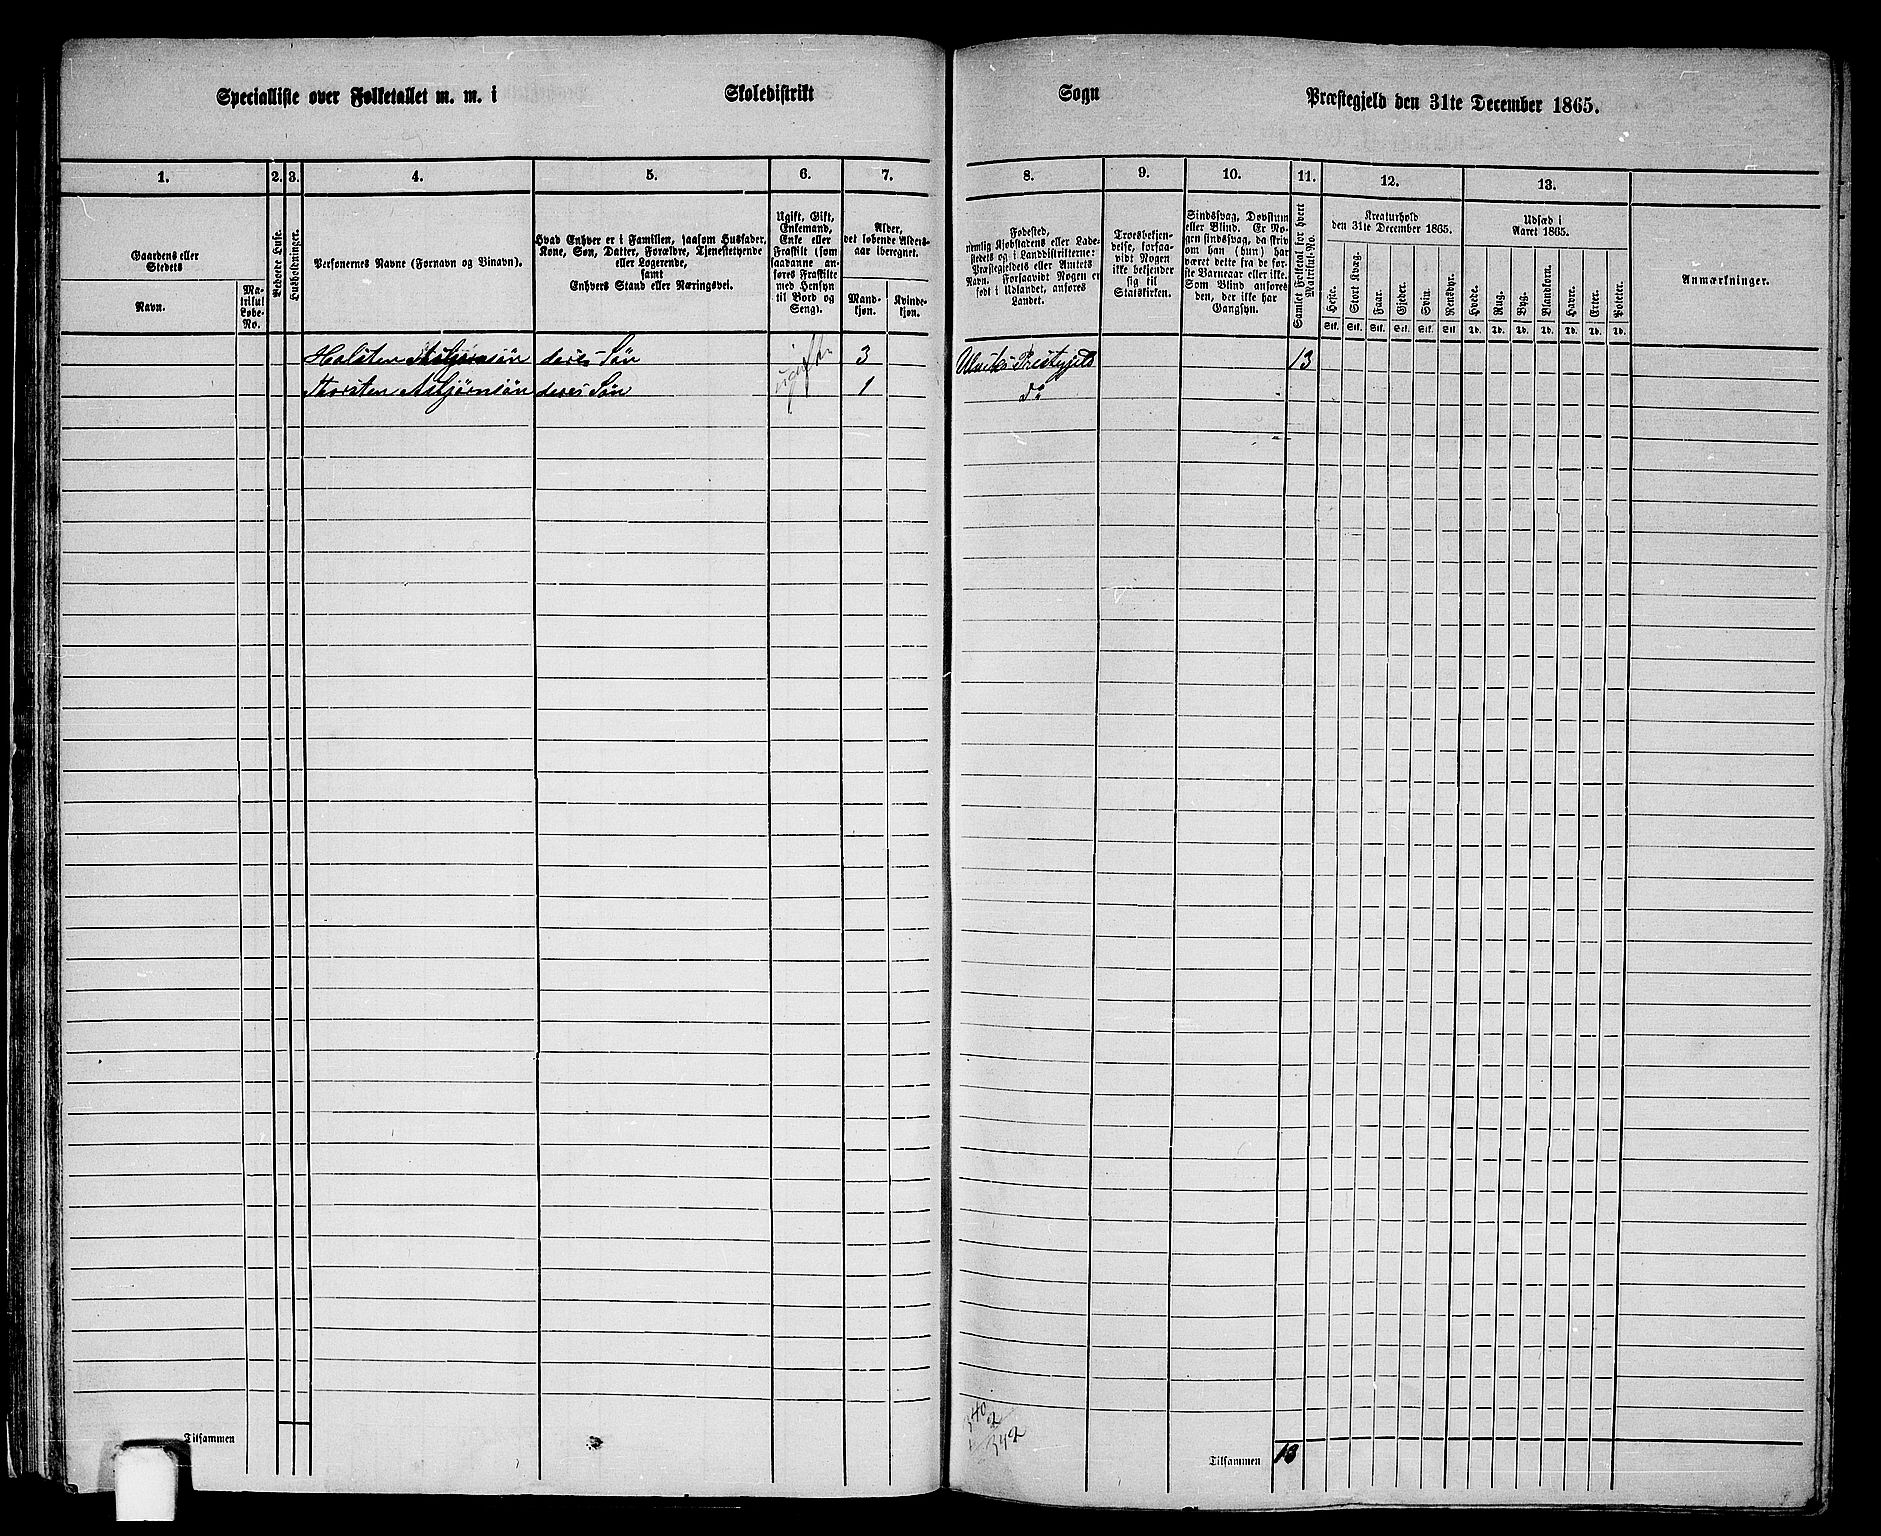 Specialliste over Folketallet m. m. i Skoledistrikt Sogn Præstegjeld den 31te December 1865.
1. 2. 3. 4. 5. 6. 7. 8. 9. 10. 11. 12. 13.
Gaardens eller
Stedets
Navn.
Ma-
trikul
Løbe-
No.
Beboede Huse.
Husholdninger.
Personernes Navne (Fornavn og Binavn).
Hvad Enhver er i Familien, saasom Husfader,
Kone, Søn, Datter, Forældre, Tjenestetyende
eller Logerende,
samt
Enhvers Stand eller Næringsvei.
Ugift, Gift,
Enkemand,
Enke eller
Fraskilt (som
saadanne an-
føres Fraskilte
med Hensyn
til Bord og
Seng).
Alder,
det løbende Alders-
aar iberegnet.
Mand-
kjøn.
Kvinde-
kjøn.
Fødested,
nemlig Kjøbstadens eller Lade-
stedets og i Landdistrikterne:
Præstegjeldets eller Amtets
Navn. Forsaavidt Nogen er
født i Udlandet, anføres
Landet.
Troesbekjen-
delse, forsaa-
vidt Nogen
ikke bekjender
sig til
Statskirken.
Sindssvag, Døvstum
eller Blind. Er No-
gen sindssvag, da skriv
om han (hun) har
været dette fra de før-
ste Barneaar eller ikke.
Som Blind anføres
den, der ikke har
Gangsyn.
Samlet Folketal for hvert
Matrikul-No.
Kreaturhold
den 31te December 1865.
Heste. Stort Kvæg. Faar. Gjeder. Svin. Rensdyr.
Stk. Stk. Stk. Stk. Stk. Stk.
Udsæd i
Aaret 1865.
Hvede. Rug. Byg. Blandkorn. Havre. Erter. Poteter.
Td. Td. Td. Td. Td. Td. Td.
Anmærkninger.
Halsten Asbjørnsøn deres Søn ugift 3 Præstegjeld 13
Thorsten Asbjørnsøn deres Søn 1 do
340
2
342
Tilsammen Tilsammen 13